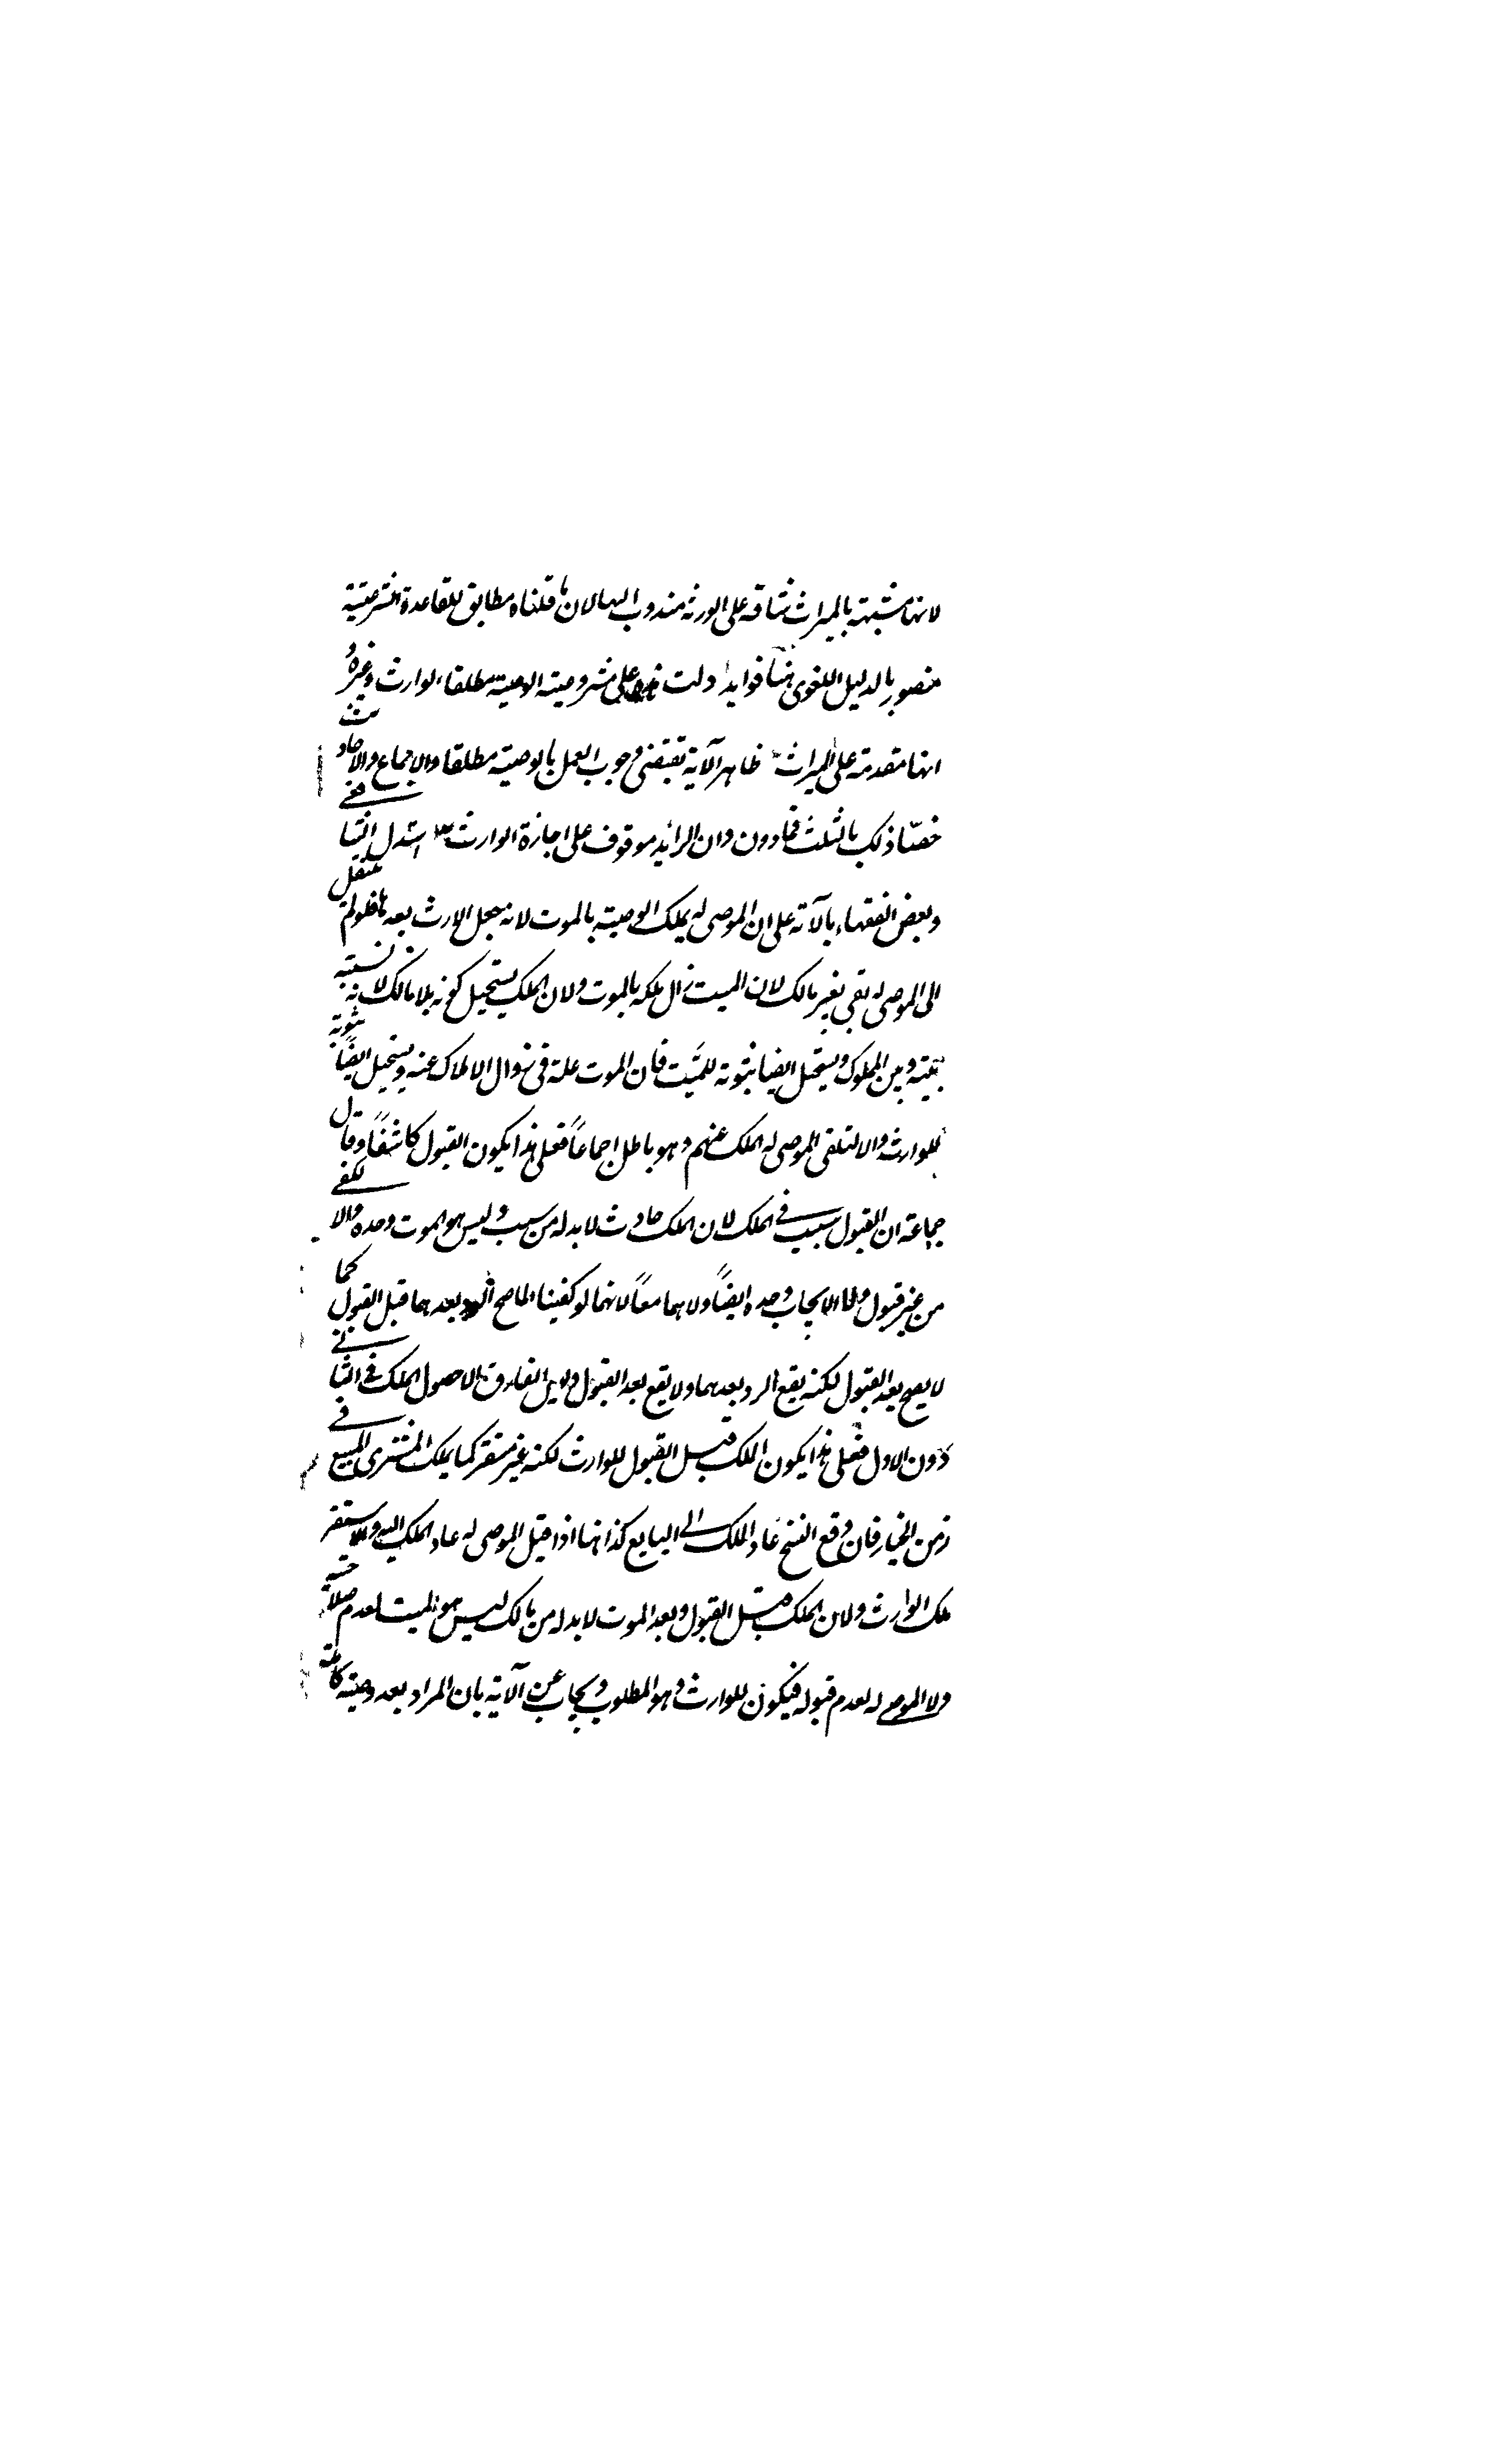 لانها مشبهة بالميراث شاقة على الورثة مندوب اليها لان ما قلناه مطابق للقاعدة الشرعية
منصور بالدليل اللغوى هنا فوايد ا دلت على مشروعية الوصية مطلقا لوارث وغيره
انها مقدمة على الميراث ظاهر الآية تقتضى وجوب العمل بالوصية مطلقا والاجماع والاحاديث
خصّا ذلك بالثلث فما دون وان الزائد موقوف على اجازة الوارث ٣ استدل الشافعي
وبعض الفقهاء بالآية على ان الموصى له يملك الوصية بالموت لانه جعل الارث بعدها فلو لم ينتقل
الى الموصى له بقى بغير مالك لان الميت زال ملكه بالموت ولان الملك يستحيل كونه بلا مالك لانه نسبة
بينه وبين المملوك ويستحيل ايضا ثبوته للميّت فان الموت علة فى زوال الاملاك عنه ويستحيل ايضًا ثبوته
للوارثه والا لتلقى الموصى له الملك عنهم وهو باطل اجماعًا فعلى هذا يكون القبول كاشفًا وقال
جماعة ان القبول سبب في الملك لان الملك حادث لا بد له من سبب وليس هو الموت وحده والا لكفى
من غير قبول ولا الايجاب وحده ايضًا ولا هما معًا لانهما لو كفيا لما صح الرد بعدهما قبل القبول كما
لا يصح بعد القبول لكنه يقع الرد بعدهما ولا يقع بعد القبول وليس الفارق الا حصول الملك فى الثاني
دون الاول فعلى هذا يكون الملك قبل القبول للوارث لكنه غير مستقر كما يملك المشترى المبيع في
زمن الخيار فان وقع الفسخ عاد الملك الى البايع كذا هنا اذا قبل الموصى له عاد الملك اليه والا استقر
ملك الوارث ولان الملك قبل القبول وبعد الموت لا بد له من مالك ليس هو الميت لعدم صلاحيته
ولا الموصى له لعدم قبوله فيكون للوارث وهو المطلوب ويجاب عن الآية بان المراد بعد وصية كاملة